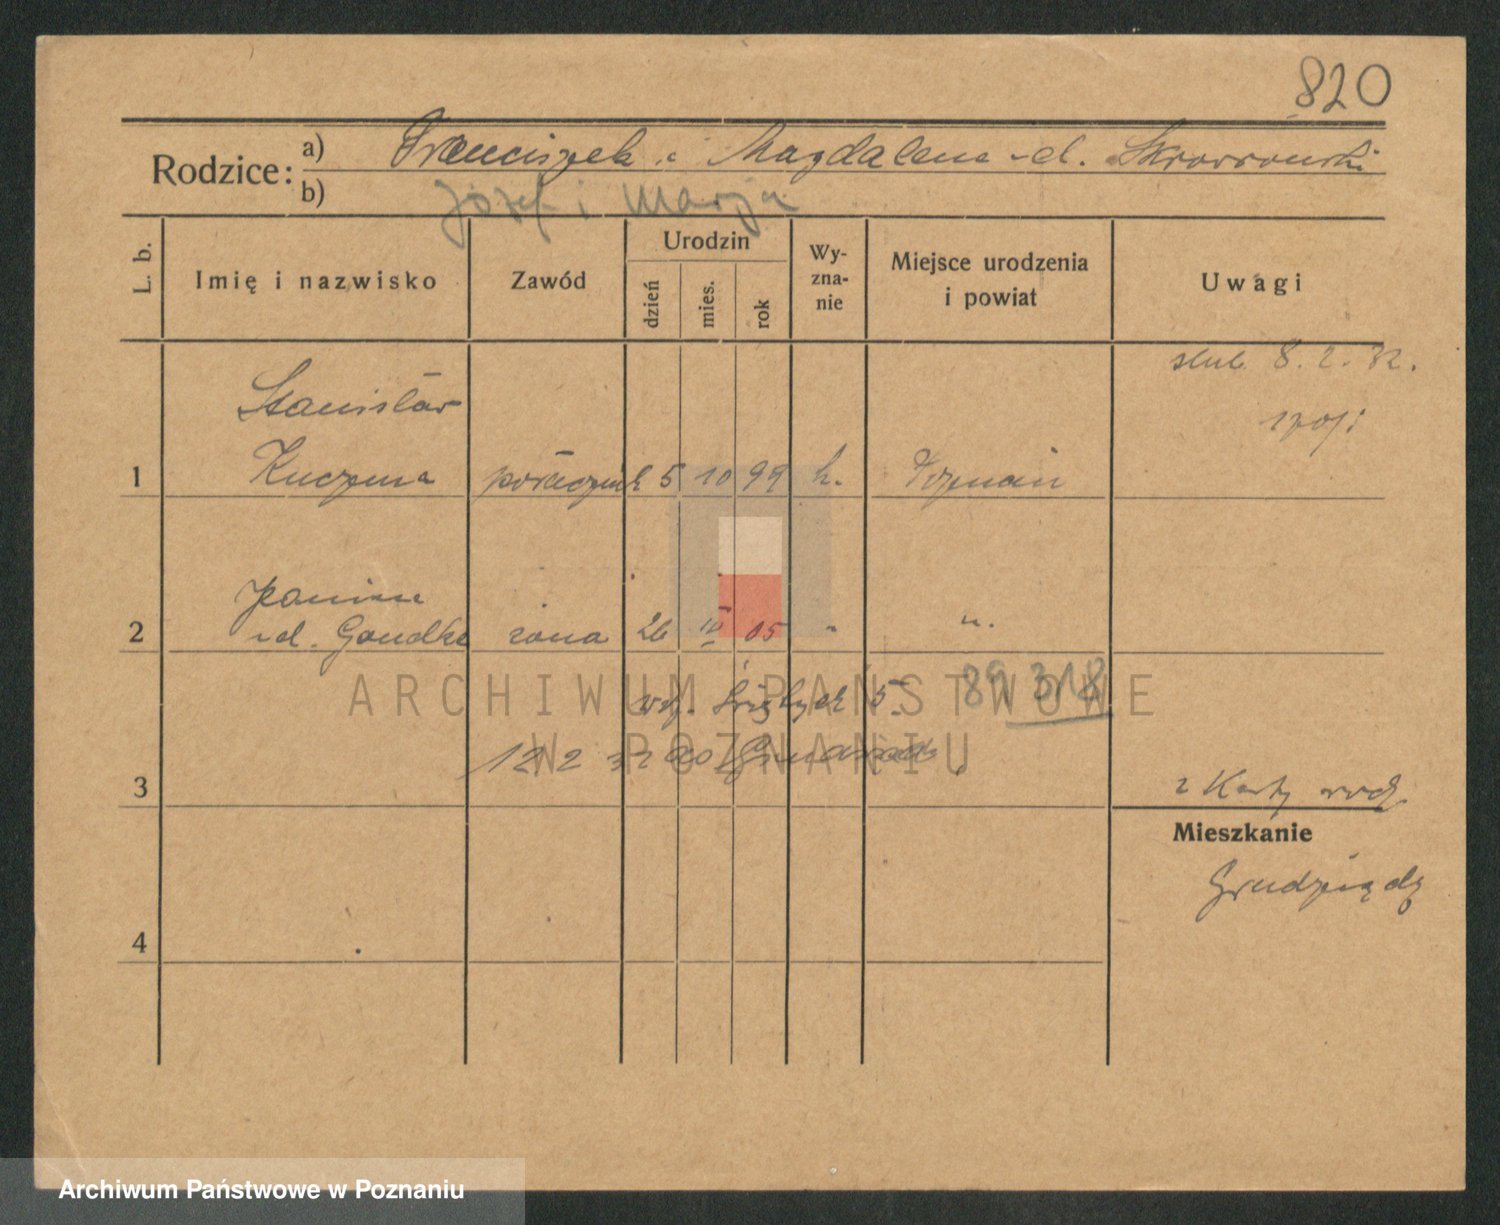 820
Rodzice: a) Franciszek i Magdalena
b) Józef i Marja
L. b.
Imię i nazwisko
Zawód
Urodzin
dzień
mies.
rok
Wy-
zna-
nie
Miejsce urodzenia
i powiat
Uwagi
ślub. 8. 2. 32.
Stanisław
1 Kuczma porucznik 5 10 99 k. Poznań
Janina
2 żona 26 IV 05 " "
5. 89 318
12 2 32 do
3
z Karty rodz.
Mieszkanie
Grudziądz
4
ARCHIWUM PAŃSTWOWE
W POZNANIU
Archiwum Państwowe w Poznaniu